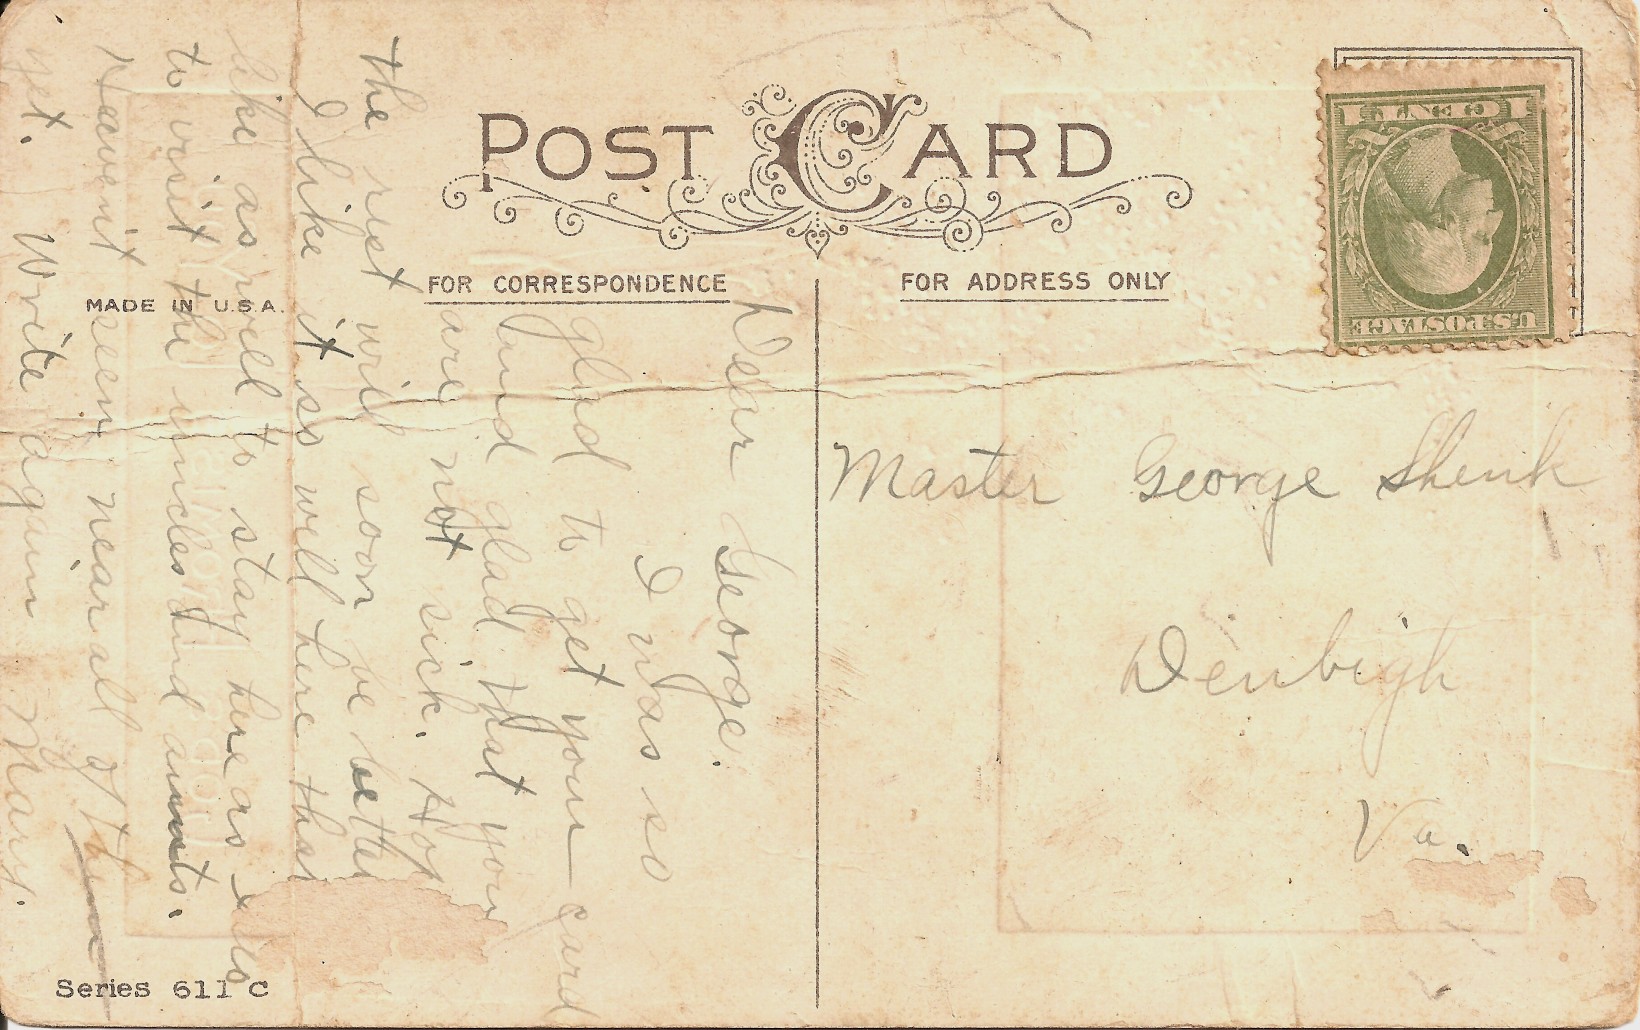 POST CARD
FOR CORRESPONDENCE
FOR ADDRESS ONLY
MADE IN U.S.A.
1 CENT 1
U.S. POSTAGE
Master George Shenk
Denbigh
Va.
Dear George.
I was so
glad to get your card
and glad that you
are not sick. Hop
the rest will soon be better
I like it so well here that
like as well to stay here as
to visit the uncles and aunts.
Havent seen near all of them
yet. Write again Mary.
Series 611 C